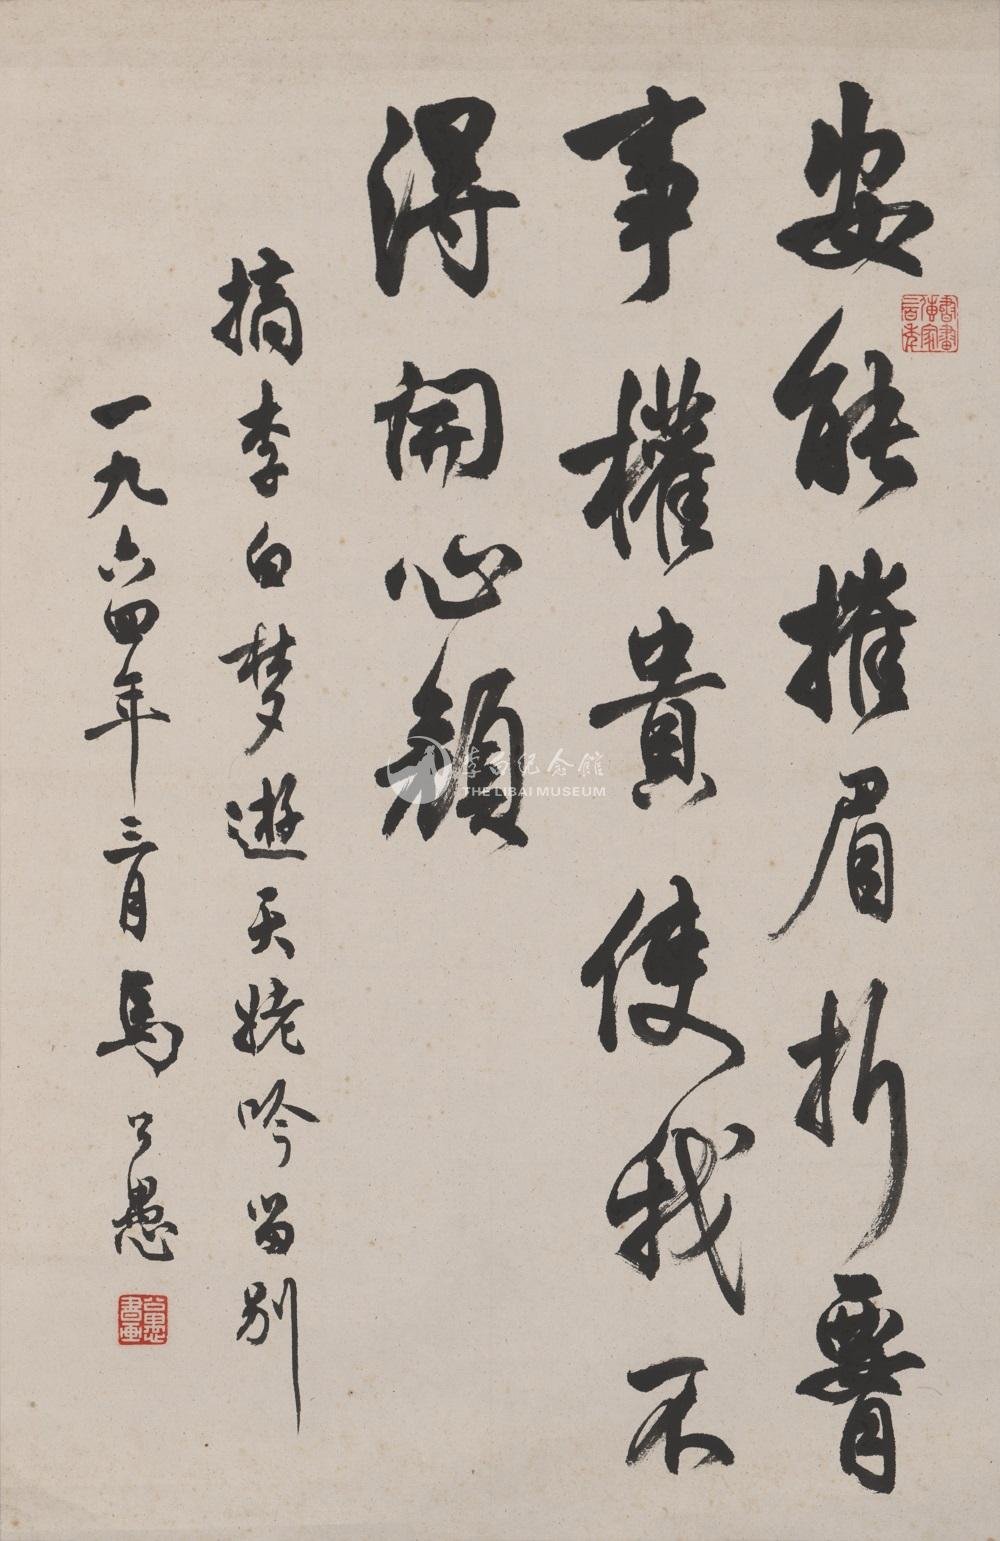 安能摧眉折腰
事權貴使我不
得開心顏
摘李白梦遊天姥吟留别
一九六四年三月馬公愚
書畫傳家
公愚書畫
李白纪念館
THE LIBAI MUSEUM